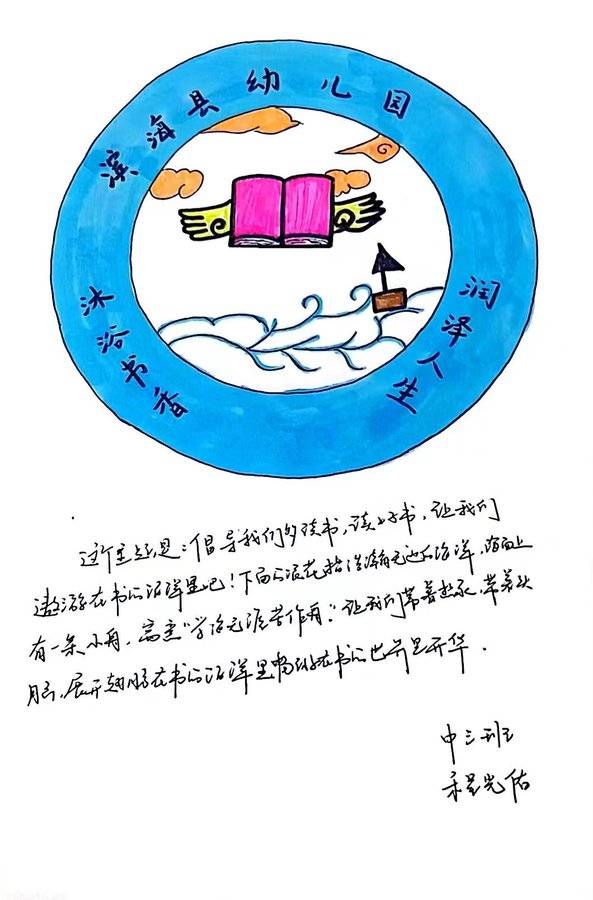 滨海县幼儿园
沐浴书香
润泽人生
这个主题是：倡导我们多读书，读好书，让我们
遨游在书的海洋里吧！下面的浪花指浩瀚无边的海洋，海面上
有一条小舟，寓意“学海无涯苦作舟”。让我们带着
展开翅膀在书的海洋里畅游在书的
中三班
程光佑